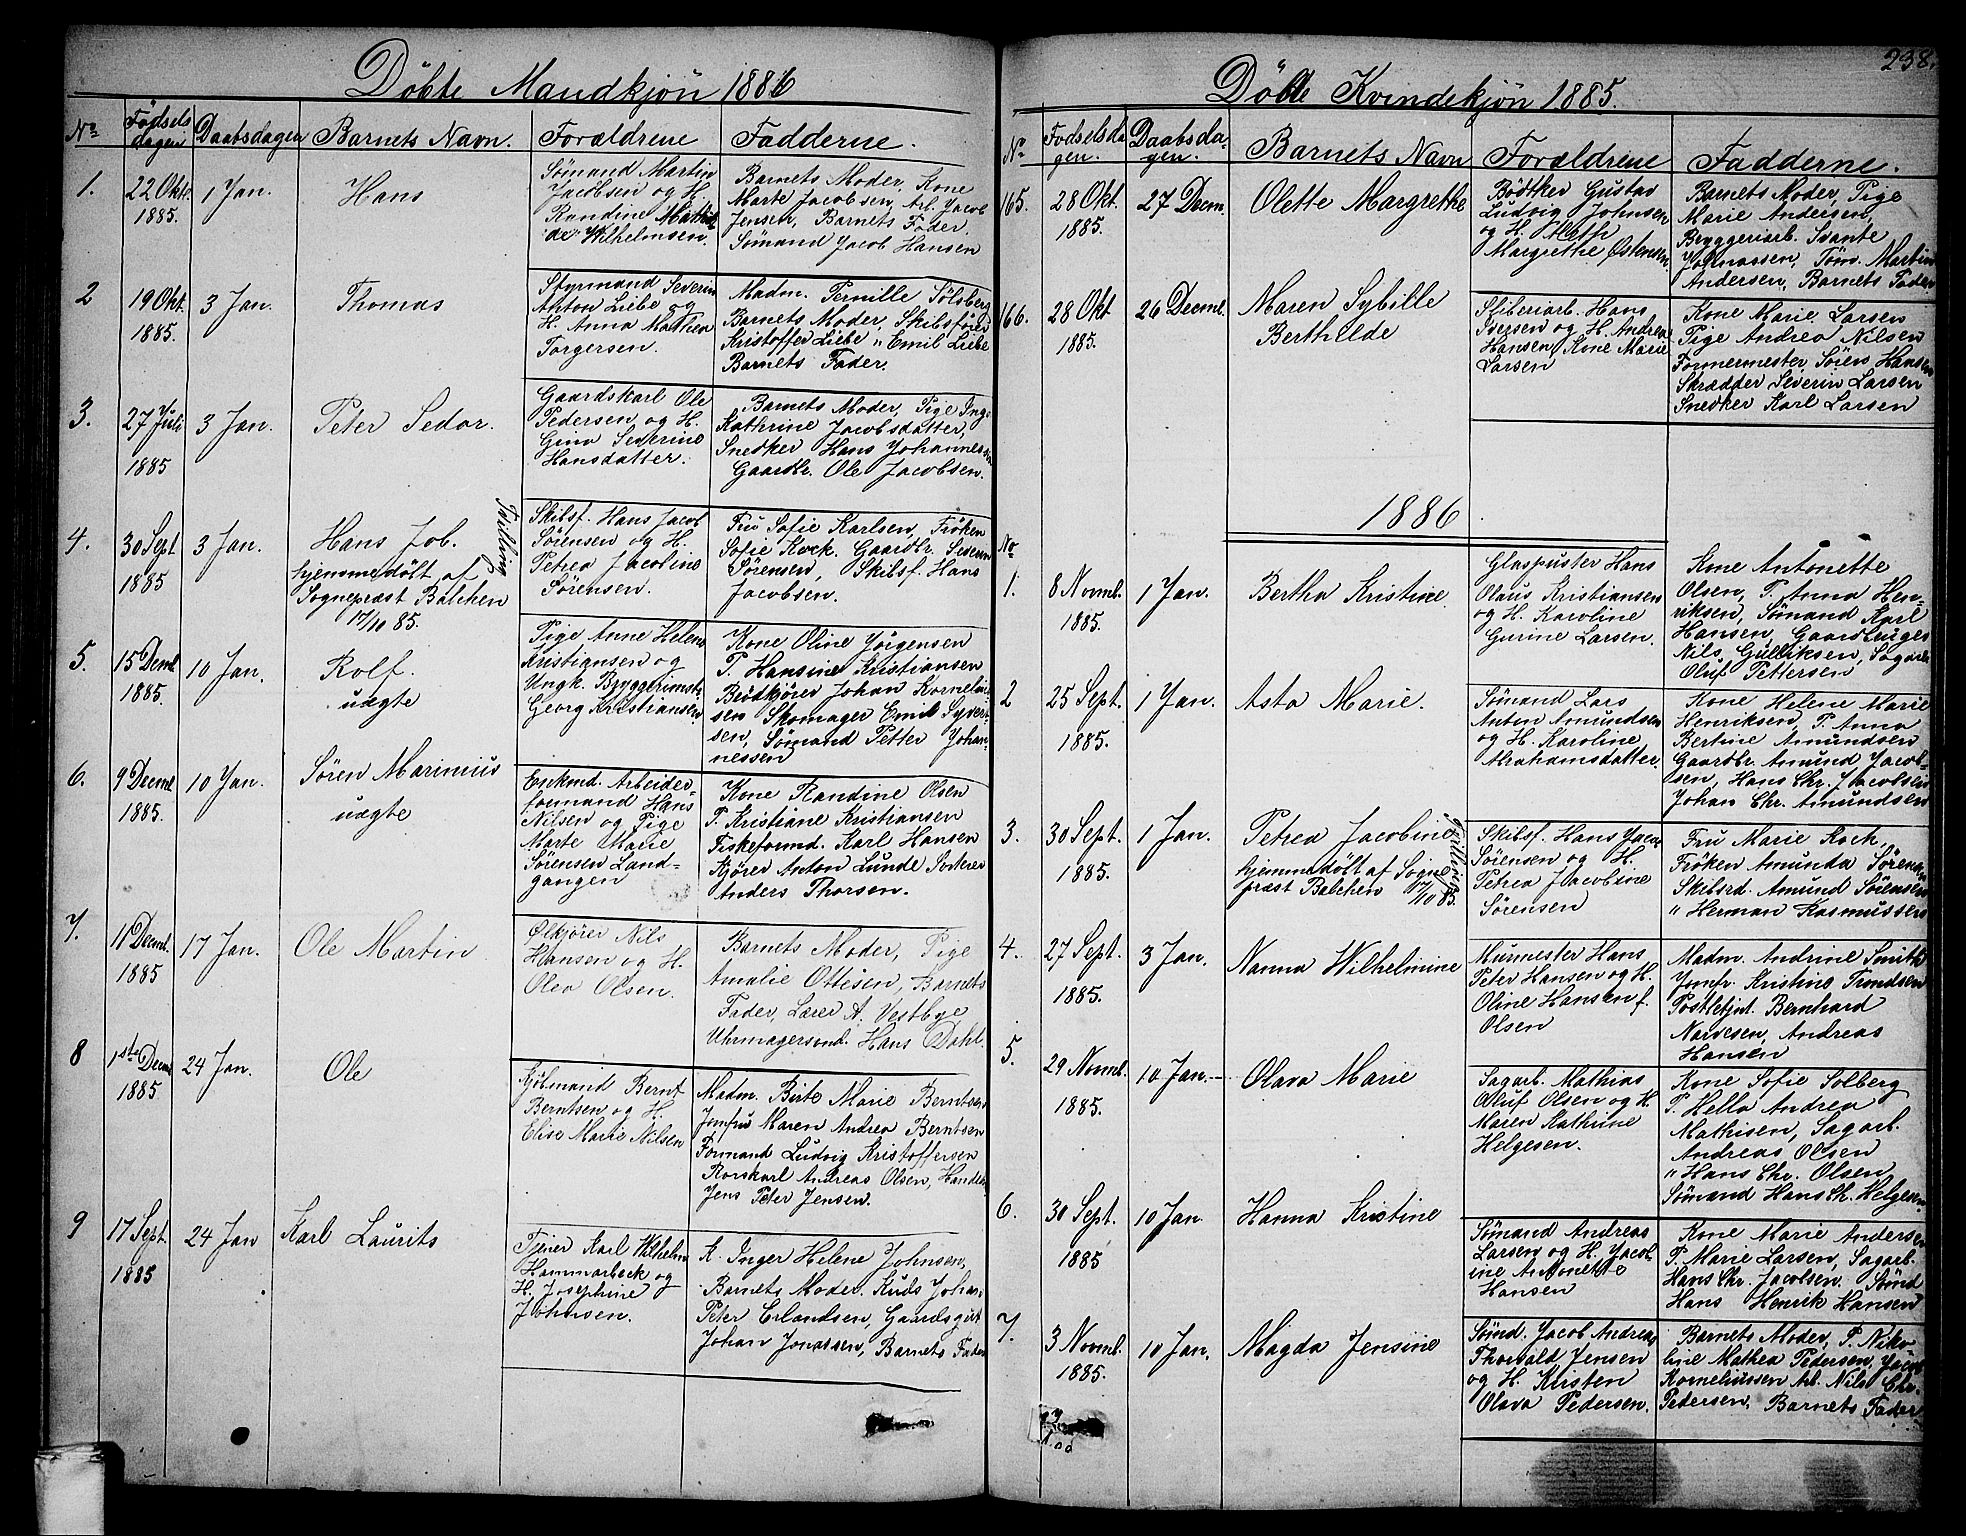 Döbte Mandkjön 1886
No
Fødsels
dagen
Daabsdagen
Barnets Navn.
Forældrene
Fadderne.
1.
22 Okt.
1885.
1 Jan.
Hans
Sømand Martin
Jacobsen og H.
Randine Mathil
de Wilhelmsen.
Barnets Moder, Kone
Marte Jacobsen, Arb. Jacob
Jensen, Barnets Fader.
Sømand Jacob Hansen
2
19 Okt.
1885.
3 Jan.
Thomas
Styrmand Severin
Anton Liebe og
H. Anna Mathea
Torgersen.
Madm. Pernille Sölsberg
Barnets Moder, Skibsfører
Kristoffer Liebe " Emil Liebe
Barnets Fader.
3.
27 Juli
1885
3 Jan.
Peter Sedor.
Gaardskarl Ole
Pedersen og H.
Gina Severine
Hansdatter.
Barnets Moder, Pige Ing.
Kathrine Jacobsdatter,
Snedker Hans Johannessen
Gaardbr. Ole Jacobsen.
4.
30 Sept
1885
3 Jan.
Hans Job.
Tvilling
hjemmedöbt af
Sognepræst Balchen
17/10 85.
Skibsf. Hans Jacob
Sørensen og H.
Petrea Jacobine
Sørensen.
Fru Sofie Karlsen, Frøken
Sofie Kock. Gaardbr. Severin
Sørensen, Skibsf. Hans
Jacobsen.
5.
15 Deml
1885.
10 Jan.
Rolf.
uægte
Pige Anne Helene
Kristiansen og
Ungk. Bryggerimstr.
Georg Kristiansen
Kone Oline Jörgensen
P. Hansine Kristiansen
Brödkjører Johan Korneliu-
sen Skomager Emil Syvert-
sen, Sømand Petter Johan-
nessen
6.
9 Decml
1885.
10 Jan.
Søren Marinius
uægte
Enkmd. Arbeider-
formand Hans
Nilsen og Pige
Marte Marie
Sørensen Land-
gangen
Kone Randine Olsen
P. Kristiane Kristiansen
Fiskeformd. Karl Hansen
Kjører Anton Lunde
Anders Thorsen.
7.
11 Decml.
1885
17 Jan.
Ole Martin
Ølkjører Nils
Hansen og H.
Olea Olsen.
Barnets Moder, Pige
Amalie Ottesen, Barnets
Fader, Lærer A. Vestbye
Uhrmagersvend Hans Dahl.
8
1ste Decml
1885
24 Jan.
Ole
Sjömand Bernt
Berntsen og H.
Elise Marie Nilsen
Madm. Birte Marie Berntsen
Jomfru Maren Andrea Berntsen
Formand Ludvig Kristoffersen
Rorskarl Andreas Olsen, Handler
Jens Peter Jensen.
9
17 Sept.
1885
24 Jan
Karl Laurits
Tjener Karl Wilhelm
Hammarbeck og
H. Josephine
Johnsen.
K. Inger Helene Johnsen,
Barnets Moder. Kuds Johan.
Peter Erlandsen, Gaardsgut
Johan Jonassen, Barnets Fader
238.
Döbte Kvindekjön 1885.
No
Fodselsda
gen.
Daabsda-
gen.
Barnets Navn
Forældrene
Fadderne.
165.
28 Okt.
1885.
27 Decm.
Olette Margrethe
Bödtker Gustav
Ludvig Johnsen
og H.
Margrethe Østensen
Barnets Moder, Pige
Marie Andersen,
Bryggeriarb. Svante
Johnassen, Tøm. Martin
Andersen, Barnets Fader
166.
28 Okt
1885.
26 Decml.
Maren Sybille
Berthilde
Sliberiarb. Hans
Iversen og H. Andrea
Hansen, Kone Marie
Larsen
Kone Marie Larsen
Pige Andrea Nilsen
Formermester Søren Hansen
Skrædder Severin Larsen
Snedker Karl Larsen
1886
No
1.
8 Novml.
1885.
1 Jan.
Bertha Kristine
Glaspuster Hans
Olaus Kristiansen
og H. Karoline
Gurine Larsen.
Kone Antonette
Olsen, P. Anna Hen-
riksen, Sømand Karl
Hansen, Gaardbruger
Nils Gulliksen, Sagarb.
Oluf Pettersen
2
25 Sept.
1885.
1 Jan.
Asta Marie.
Sømand Lars
Anton Amundsen
og H. Karoline
Abrahamsdatter
Kone Helene Marie
Henriksen, P. Anna
Bertine Amundsen
Gaardbr. Amund Jacob-
sen, Hans Chr. Jacobsen
Johan Chr. Amundsen
3.
30 Sept.
1885.
1 Jan.
Petrea Jacobine
Tvilling
hjemmedöbt af Sogne
præst Balchen 17/10 85.
Skibsf. Hans Jacob
Sørensen og H.
Petrea Jacobine
Sørensen
Fru Marie Kock,
Frøken Amunda Sørensen
Skibsrd. Amund Sørensen
" Herman Rasmussen
4.
27 Sept.
1885.
3 Jan.
Nanna Wilhelmine
Murmester Hans
Peter Hansen og H.
Oline Hansen f.
Olsen
Madm. Andrine Smith
Jomfr. Kristine Trondsen
Postbetjnt. Bernhard
Narvesen, Andreas
Hansen
5.
29 Novml.
1885.
10 Jan.
Olava Marie
Sagarb. Mathias
Oluf Olsen og H.
Maren Kathrine
Helgesen.
Kone Sofie Solberg
P. Hella Andrea
Mathisen, Sagarb.
Andreas Olsen
" Hans Chr. Olsen
Sømand Hans Ch. Helgesen
6.
30 Sept.
1885
10 Jan.
Hanna Kristine
Sømand Andreas
Larsen og H. Jacob
ine Antonette
Hansen
Kone Marie Andersen
P. Marie Larsen, Sagarb.
Hans Chr. Jacobsen. Sømd
Hans Henrik Hansen
7.
3 Novml.
1885.
10 Jan.
Magda Jensine
Sømd. Jacob Andreas
Thorvald Jensen
og H. Kristen
Olava Pedersen.
Barnets Moder, P. Niko-
line Mathea Pedersen, Jacob
Korneliussen Arb. Nils Chr.
Pedersen, Barnets Fader